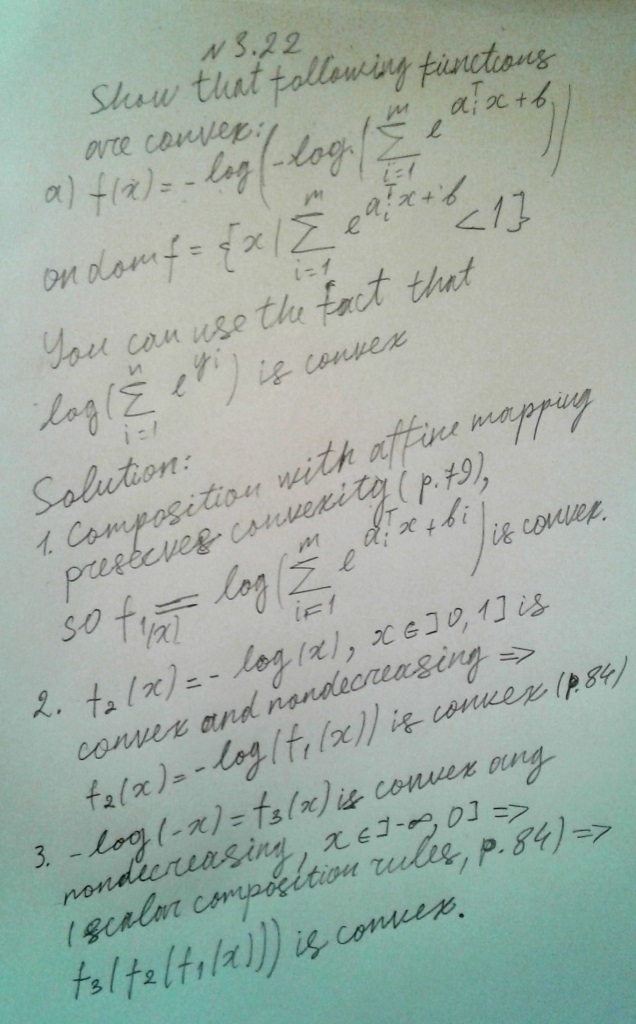 N 3.22
Show that following functions
are convex:
a) f(x) = -log(-log(∑_{i=1}^{m} e^{a_i^T x + b_i}))
on dom f = {x | ∑_{i=1}^{m} e^{a_i^T x + b} < 1}
You can use the fact that
log(∑_{i=1}^{n} e^{y_i}) is convex
Solution:
1. composition with affine mapping
preserves convexity (p. 79),
so f_1(x) = log(∑_{i=1}^{m} e^{a_i^T x + b_i}) is convex.
2. f_2(x) = -log(x), x ∈ ]0, 1] is
convex and nondecreasing =>
f_2(x) = -log(f_1(x)) is convex (p.84)
3. -log(-x) = f_3(x) is convex any
nondecreasing, x ∈ ]-∞, 0] =>
(scalar composition rules, p. 84) =>
f_3(f_2(f_1(x))) is convex.